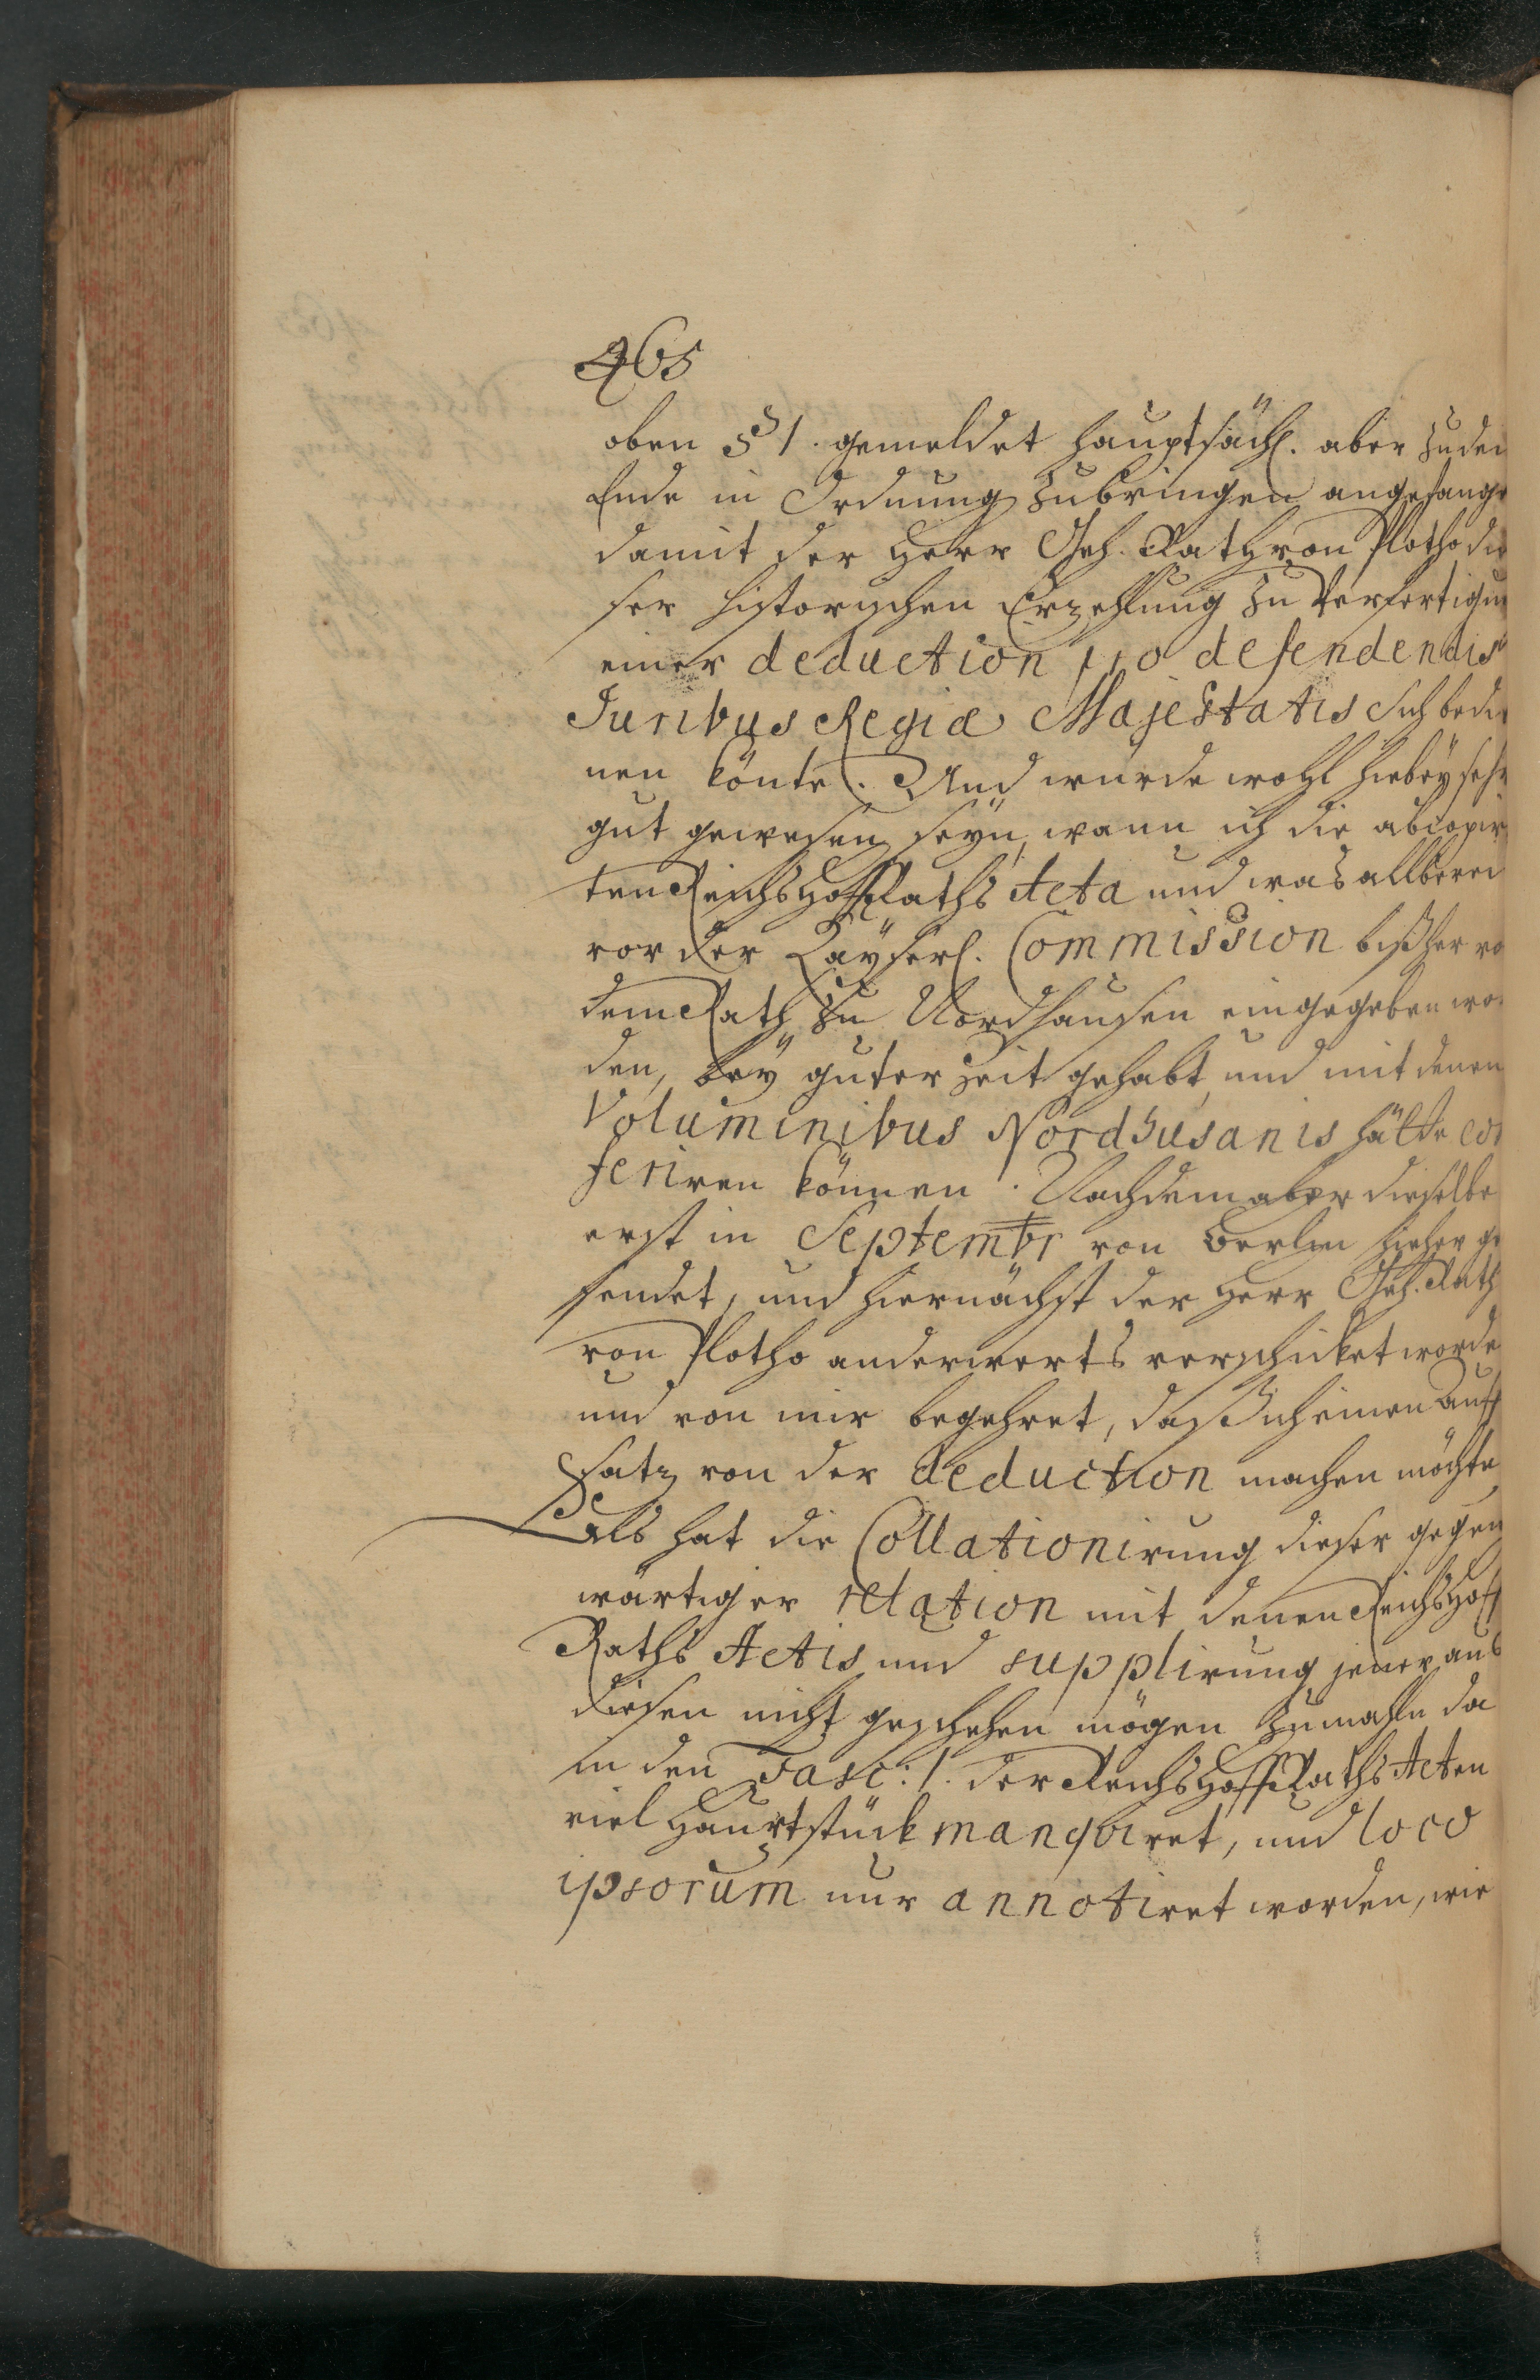 465
oben § 1. gemeldet hauptsächl. aber zu den
Ende in Ordnung zubringen angefange
damit der Herr Geh. Rath von Plotho die
ser historischen Erzehlung zu Verfertigun
einer deduction pro defendendis
Juribus Regiæ Majestatis sich bedie
nen könte. Und würde wohl hiebey sehr
gut gewesen seyn, wann ich die abcopir
ten ReichsHoffRaths Acta und was allberei
vor der Kayserl. Commission bißher vo
dem Rath zu Nordhausen eingegeben wor
den, bey guter Zeit gehabt, und mit denen
Voluminibus Nordhusanis hätte con
feriren können. Nachdem aber dieselbe
erst in Septembr von Berlin hieher ge
sendet, und hiernächst der Herr Geh. Rath
von Plotho anderwerts verschicket worde
und von mir begehret, daß ich einen Auff
satz von der deduction machen möchte,
Als hat die Collationirung dieser gegen
wärtiger relation mit denen ReichsHoff
Raths Actis und supplirung jener aus
diesen nicht geschehen mögen zumahln da
in den Fasc: 1. der ReichsHoffRaths Acten
viel Hauptstück manquiret, und loco
ipsorum nur annotiret worden, wie